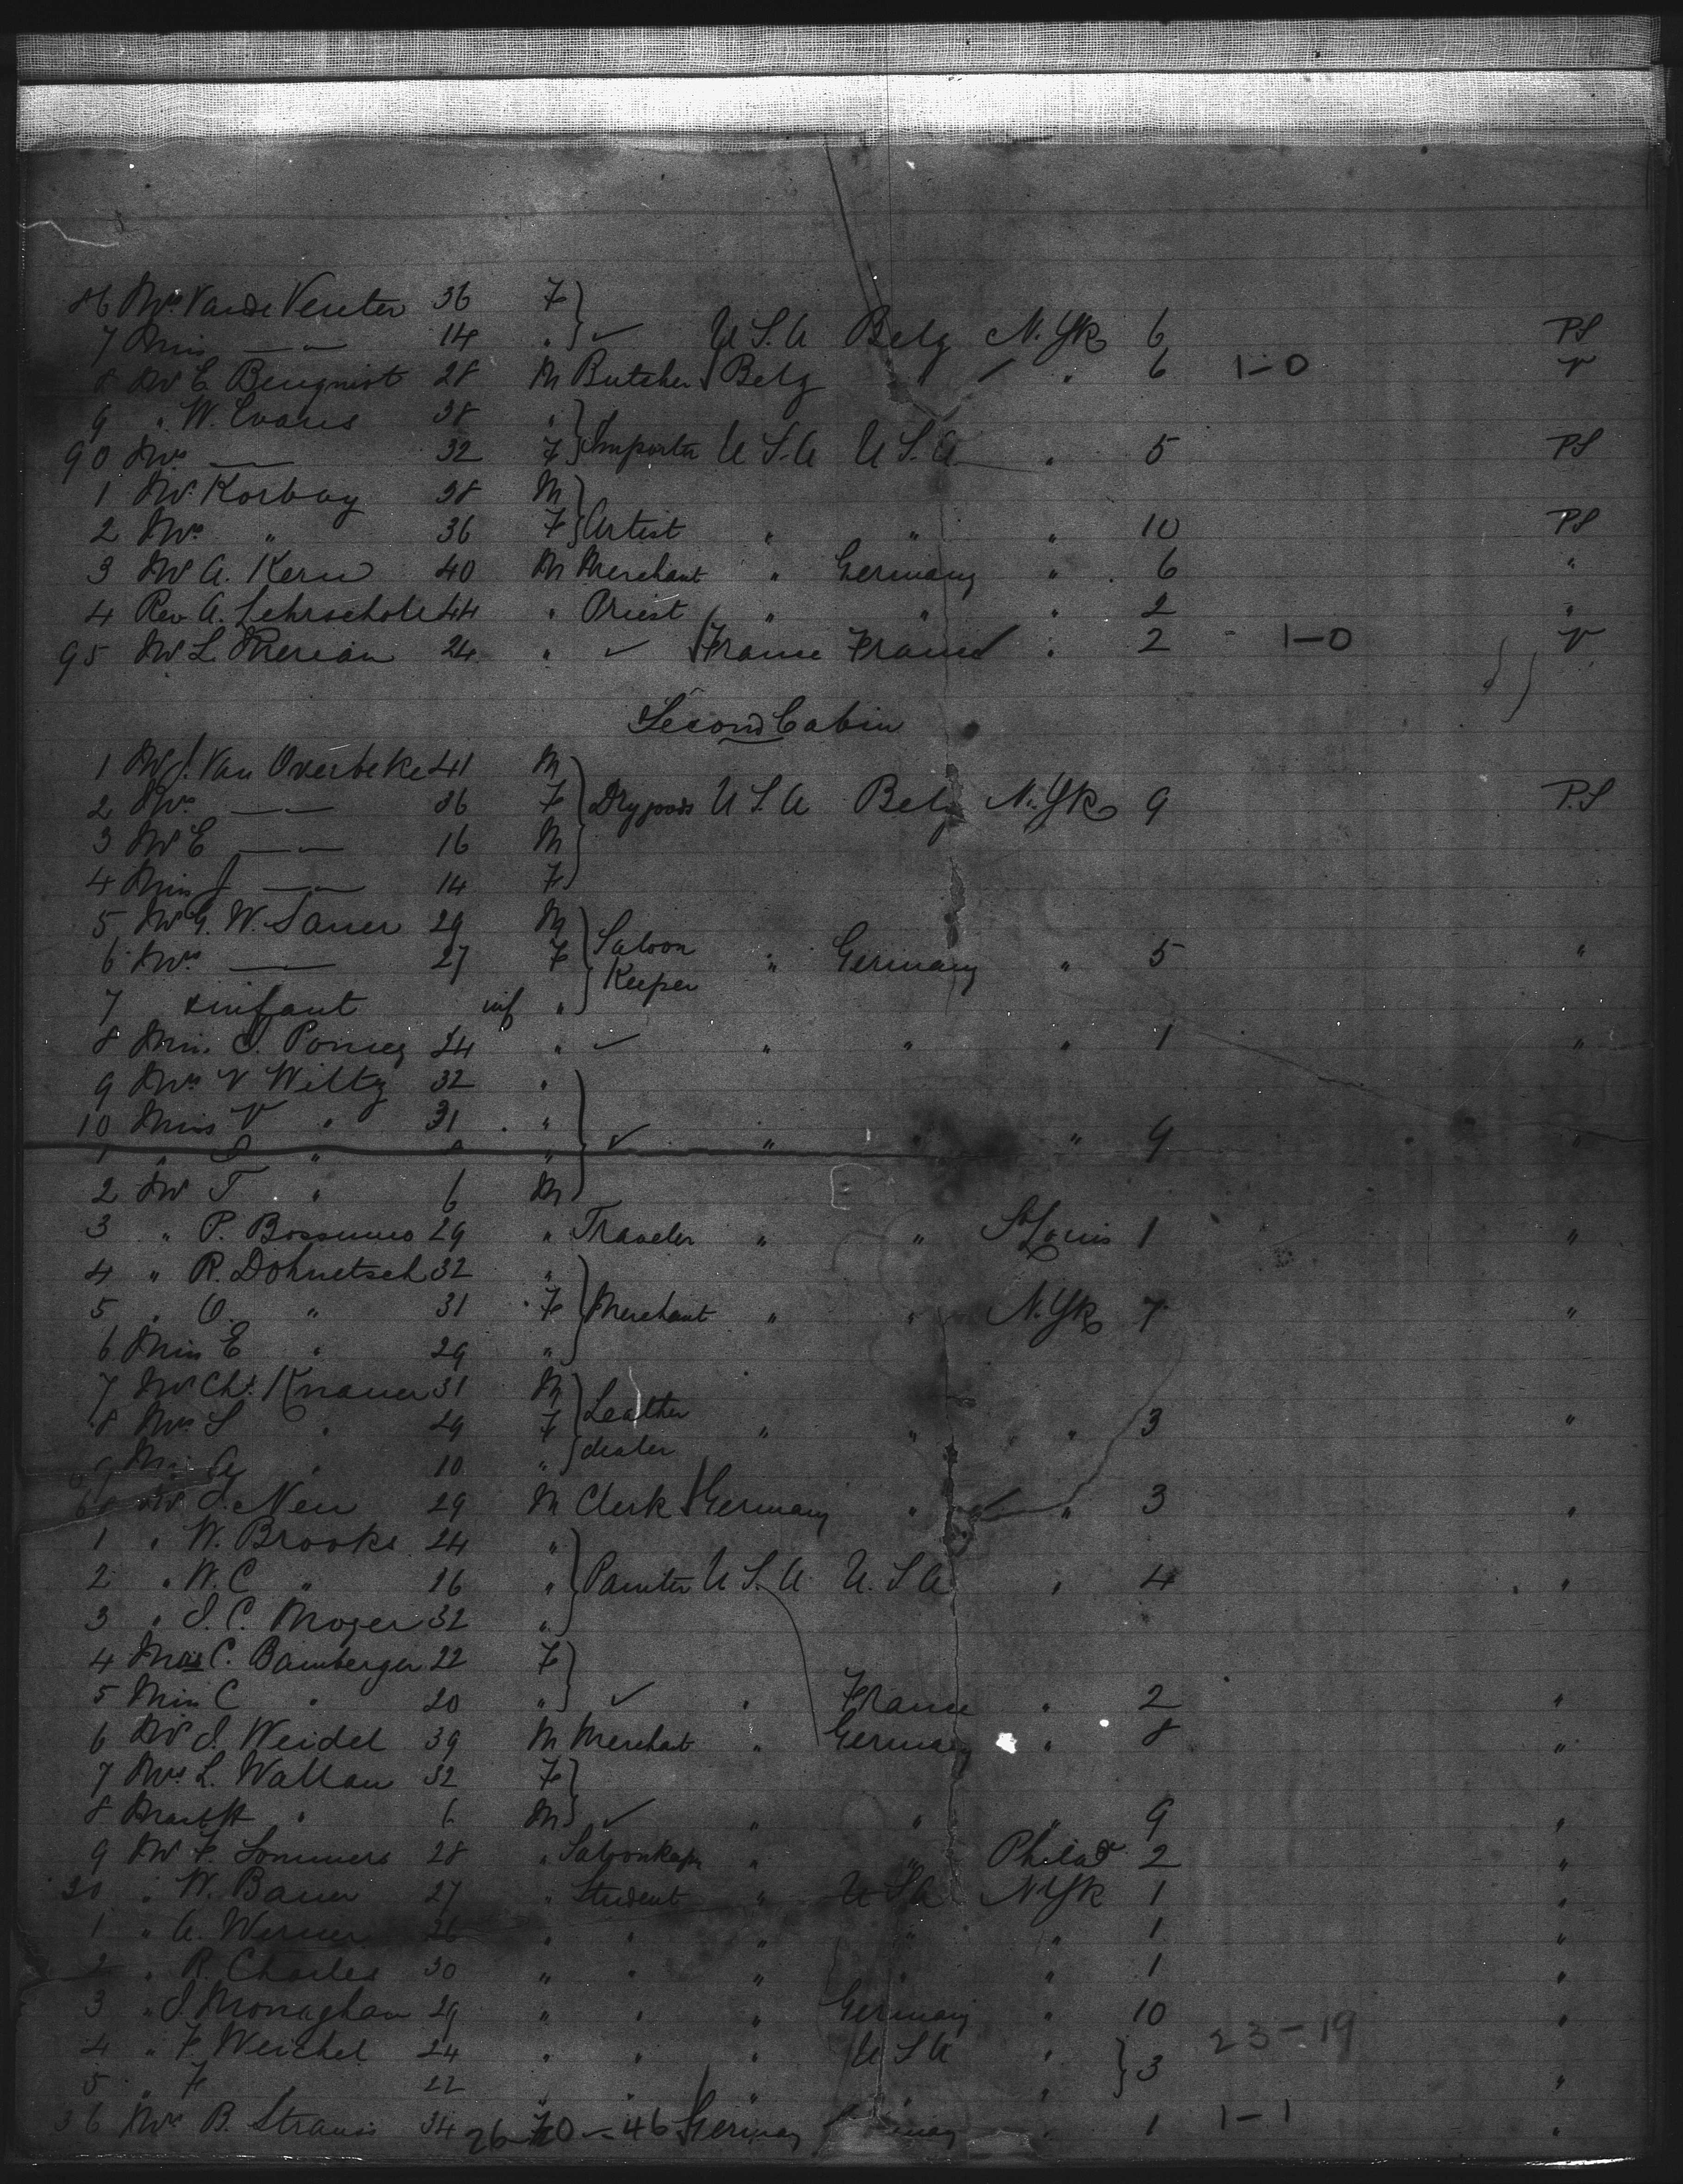 86 Mrs Van de Venter 36 F }
7 Miss — — 14 " } ✓ U.S.A Belg N.Yk 6 PS
8 Mr E Benquist 28 M Butcher Belg " ✓ " 6 1-0 V
9 " W. Evans 38 " }
90 Mrs — 32 F } Importer U.S.A U.S.A " 5 PS
1 Mr. Korbay 38 M }
2 Mrs " 36 F } Artist " " " 10 PS
3 Mr A. Kern 40 M Merchant " Germany " 6 "
4 Rev A. 44 " Priest " " " 2 "
95 Mr L. 24 " ✓ France France ✓ " 2 1-0 V
Second Cabin
1 Mr J. Van Overbeke 41 M
2 Mrs — 36 F Dry goods U.S.A Belg N.Yk 9 P.S
3 Mr E — 16 M
4 Miss J — 14 F
5 Mr G. W. Sauer 29 M
6 Mrs — 27 F Saloon Keeper " Germany " 5 "
7 & infant inf "
8 Miss 24 " ✓ " " " 1 "
9 Mrs V Wiltz 32 "
10 Miss V " 31 " ✓ " " " 9 "
1 " S " "
2 Mr T " 6 M
3 " P. 29 " Traveler " " St Louis 1 "
4 " R. Dohnetsch 32 "
5 " O. " 31 F Merchant " " N.Yk 7 "
6 Miss E " 29 "
7 Mr Chs. Knauer 31 M
8 Mrs S " 29 F Leather dealer " " " 3 "
9 Miss A " 10 "
Mr J. Neu 29 M Clerk Germany " ✓ " 3 "
1 " W. Brooks 24 "
2 " W. C " 26 " Painter U.S.A. U.S.A " 4 "
3 " J. C. Moyer 32 "
4 C. Bamberger 22 F
5 Miss C " 20 " ✓ " France " 2 "
6 Mr J. Weidel 39 M Merchant " Germany " 8 "
7 Mrs L. Wallau 32 F
8 " 6 M ✓ " " " 9 "
9 Mr F. Sommers 28 " Saloonkeepr " " Philad 2 "
30 " W. Bauer 27 " Student " U.S.A N.Yk 1 "
1 " A. Werner 26 " " " " " 1 "
2 " R. Charles 30 " " " " " 1 "
3 " J. Monaghan 29 " " " Germany " 10 "
4 " F. Weichel 24 " " " U.S.A " } 3 23-19
5 " F 22 " " " " " "
36 Mrs B. Strauss 34 26 70 - 46 Germany " 1 1-1 "